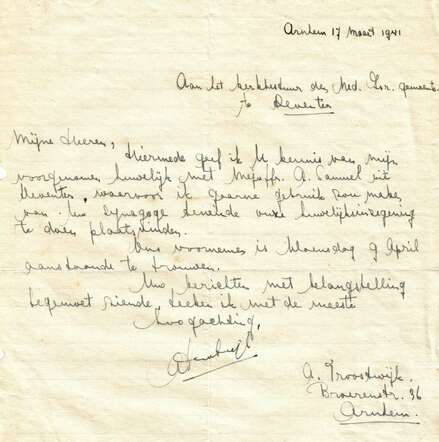 Arnhem 17 Maart 1941
Aan het Kerkbestuur der Ned. Isr. gemeente
te Deventer
Mijne Heeren,
Hiermede geef ik U kennis van mijn
voorgenomen huwelijk met Mejuffr. A. Samuel uit
Deventer, waarvoor ik gaarne gebruik zou maken
van Uw Synagoge teneinde onze huwelijksinzegening
te doen plaatsvinden.
Ons voornemen is Woensdag 9 April
aanstaande te trouwen.
Uw berichten met belangstelling
tegemoet ziende, teeken ik met de meeste
hoogachting,
A. Troostwijk.
Broerenstr. 36
Arnhem.